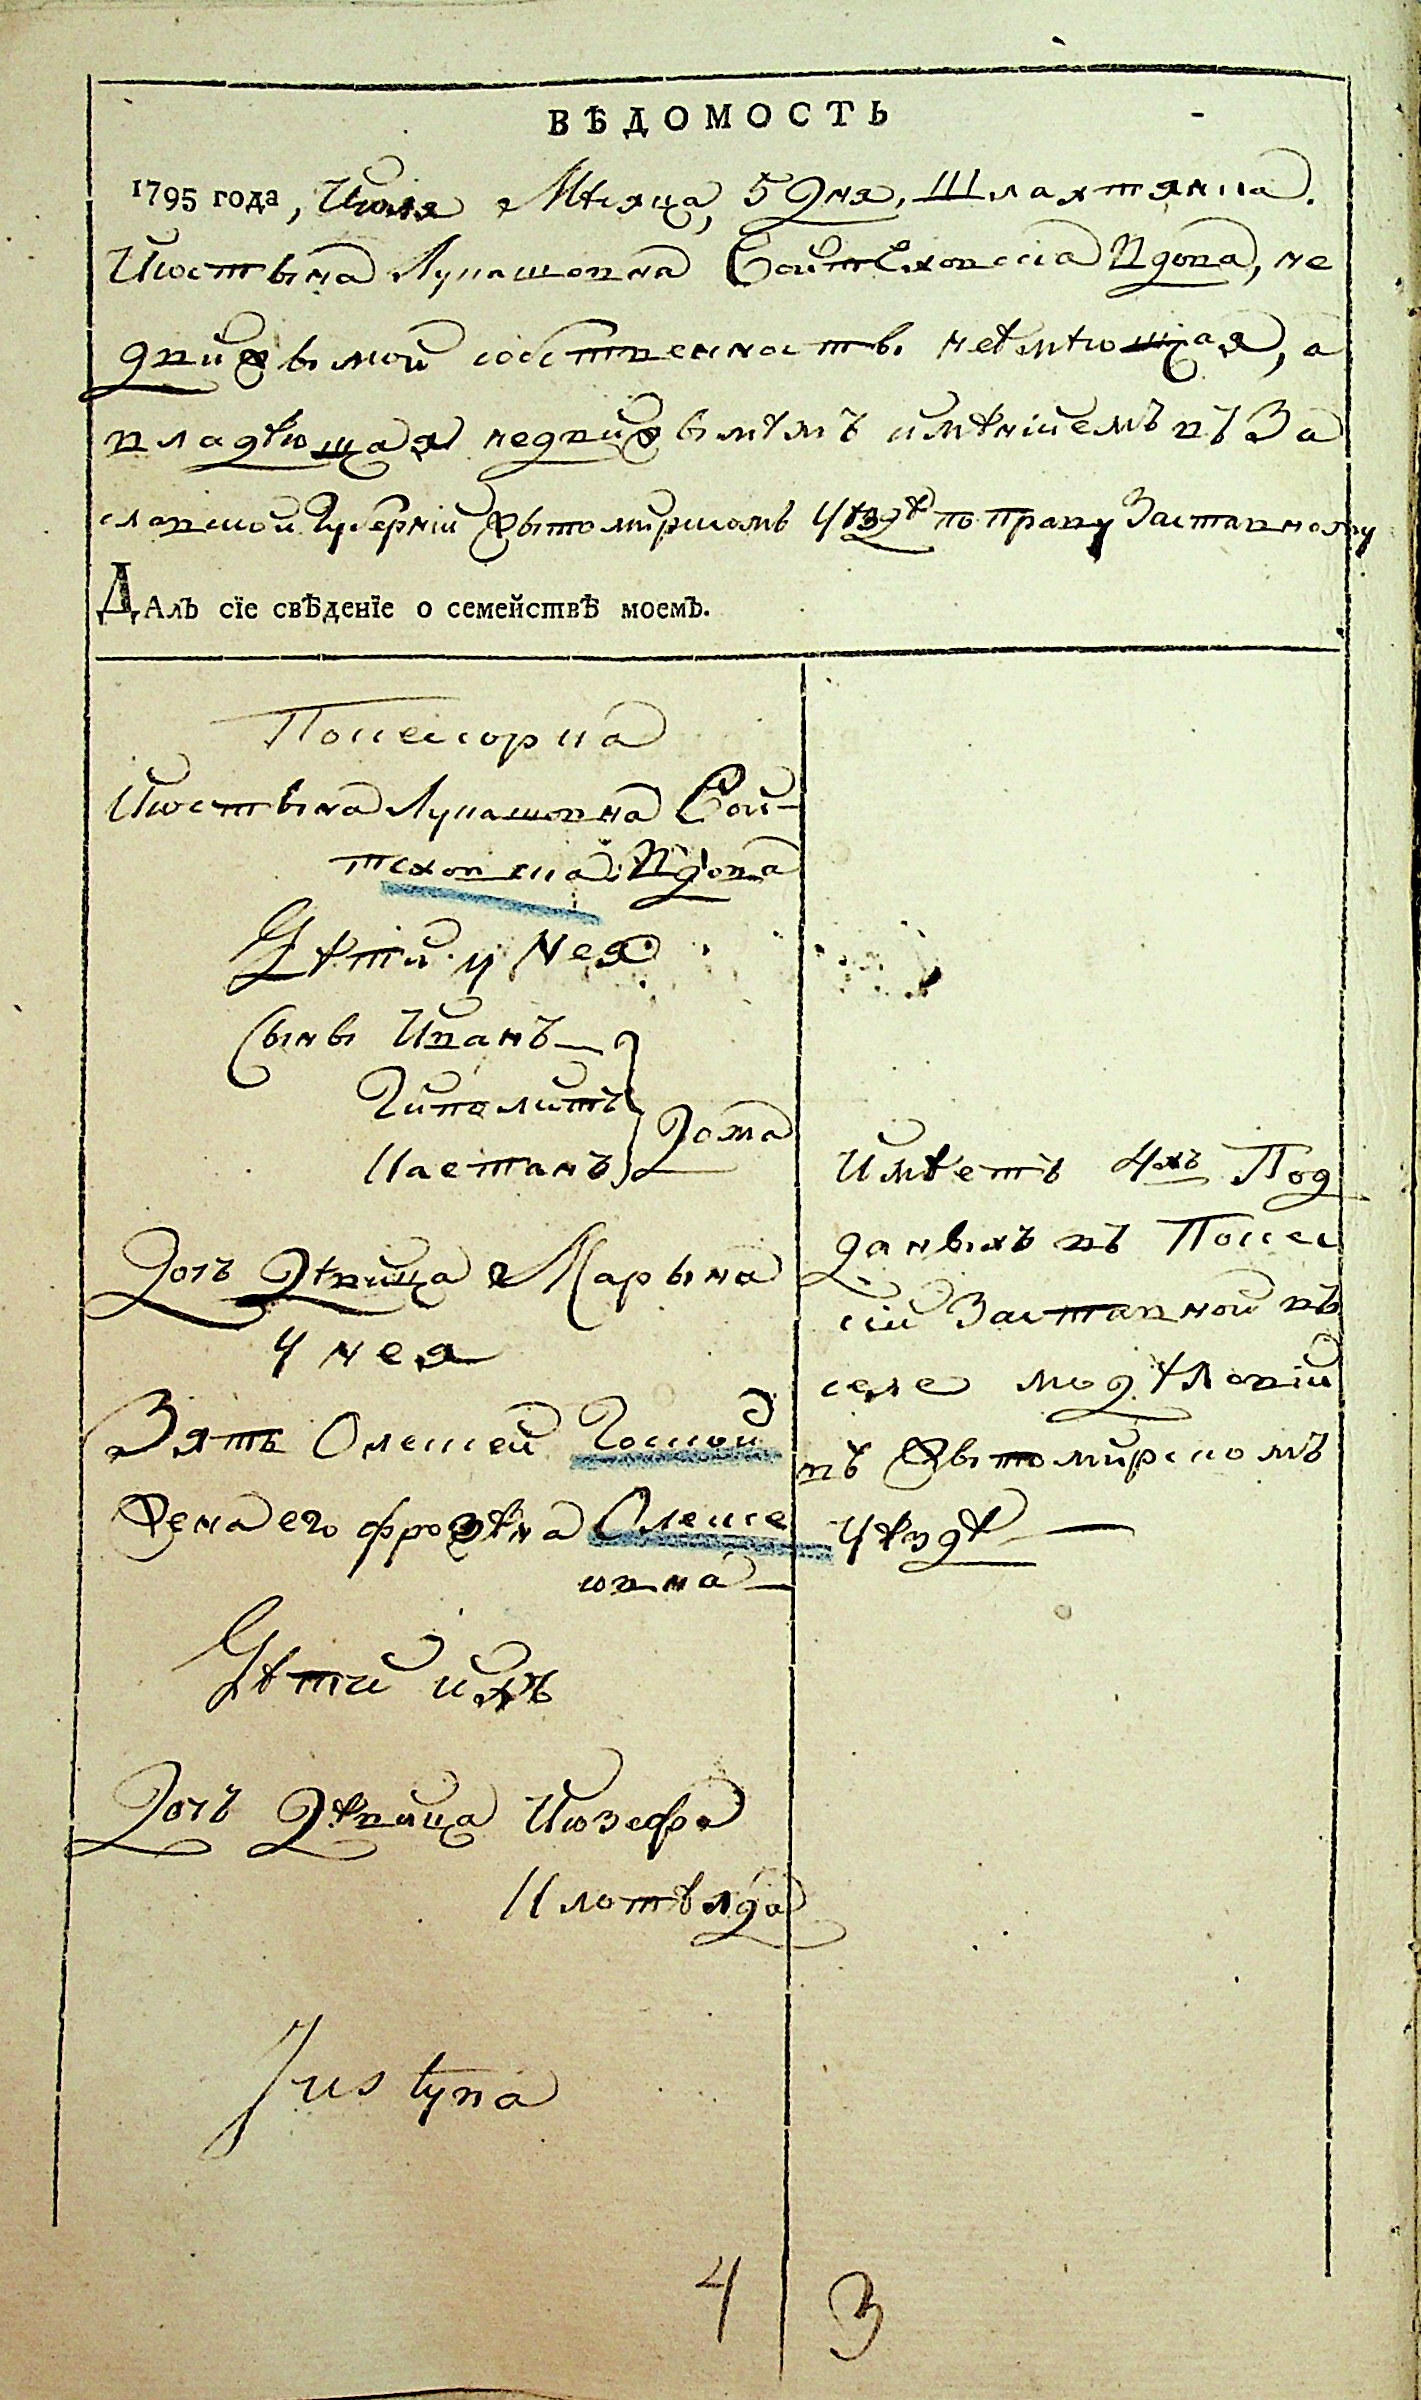 ВѢДОМОСТЬ
1795 года, Июля Мѣсяца, 5 Дня, Шляхтянка.
Июстына Лукашовна Войтеховская Вдова, не
движымой собственносты неѣмѣющая, а
владѣющая недвижымѣмъ имѣнііемъ въ За
славской Губерніи Жытомирскомъ уѣздѣ по праву Заставному
ДАлъ сїе свѣденїе о семействѣ моемъ.
Посессорка
Июстына Лукашовна Вой-
теховска Вдова
Дѣти у Нея
Сыны Иванъ
Гиполитъ
Каетанъ
Дома
Дочъ Дѣвица Марына
у нея
Зять Олексей
Жена его Олексе
ювна
Дѣти ихъ
Дочъ Дѣвица Июзефа
Клотылда
Имѣетъ 4хъ Под
даныхъ въ Посес
сіи Заставной въ
селе
въ Жытомирскомъ
уѣздѣ
Justyna
4 3